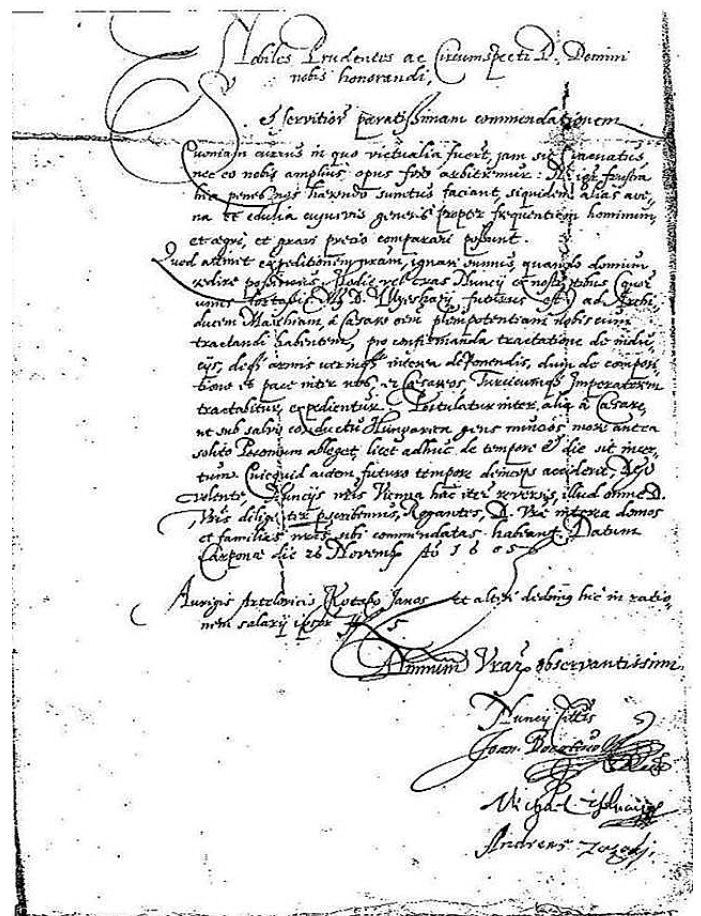 Nobiles Prudentes ac Circumspecti D. Domini
nobis honorandi,
et servitior paratissimam commendationem
Quoniam currus in quo victualia fuert, jam sit evacuatus
nec eo nobis amplius opus fore arbitremur: Ne igr frustra
hic penes nos haerendo sumtus faciant, siquidem alias ave-
na et edulia cujusvis generis propter frequentiam hominum,
et aegri, et gravi precio comparari possunt.
Quod attinet expeditionem nram, ignari sumus, quando domum
redire possimus, Hodie vel cras Nuncij ex nostratibus (quor
unus D. Illyeshazij futurus est) ad Archi-
ducem Mathiam, à Caesare oem plenipotentiam nobiscum
tractandi habentem, pro confirmanda tractatione de indu-
cijs, armis interea deponendis, dum de composi-
tione et pace inter nos, et Caesareos, Turcicumq Imperatorem
tractabitur, expedientur. Postulatur inter alia à Caesare,
ut sub salvo conductu Hungarica gens nuncios more antea
solito Posonium ableget, licet adhuc de tempore et die sit incer-
tum. Quicquid autem futuro tempore deinceps acciderit, Deo
volente, Nuncijs nris Vienna hac iter reversis, illud omne D.
Vris diligenter pscribemus, Rogantes, D. Vrae interea domos
et familias nras sibi commendatas habeant. Datum
Carponae die 26 Novemb Ao 1605
Aurigis Janos et alteri dedimq hic in ratio-
nem salarij ipsor 5
observantissimi
Nuncij
Joan. Bocatius
Michael
Andreas